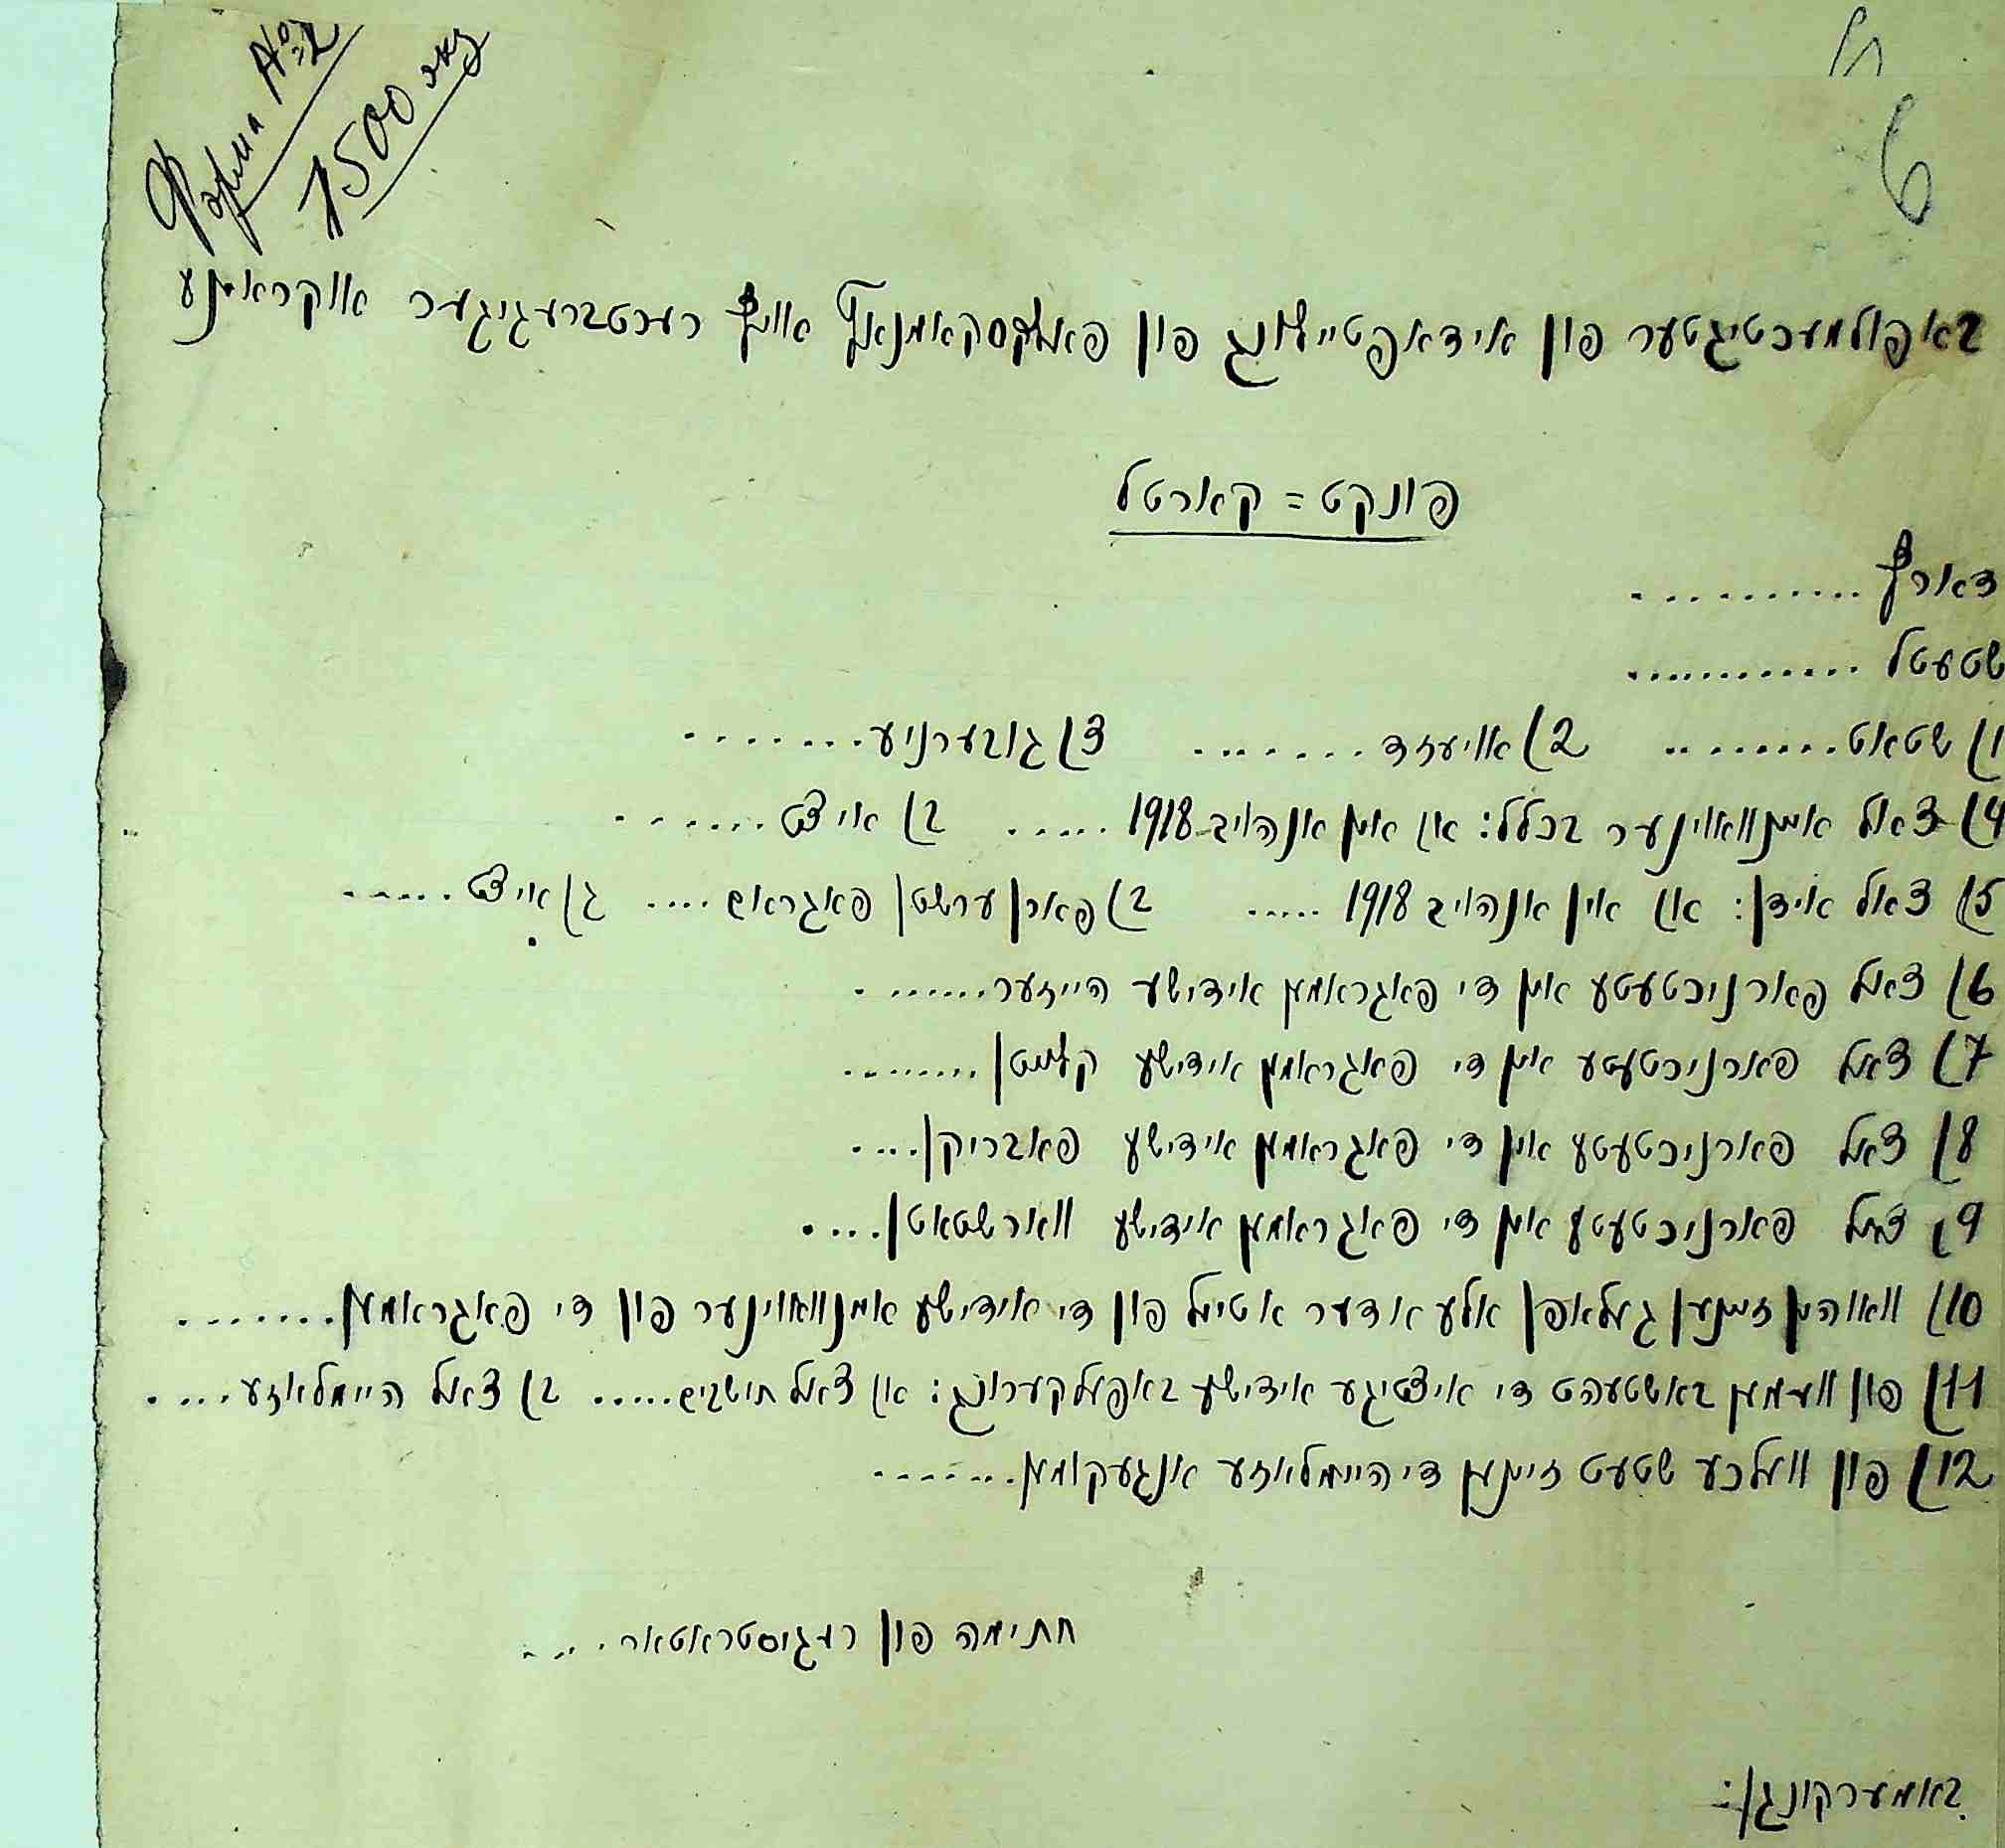 Форма №2
1500 экз
6
באפולמעכטיגטער פון אידאפטיילונג פון פאלקסקאמנאץ אויף רעכטברעגיגער אוקראינע
פונקט = קארטל
דארף ..........
שטעטל ............
1) שטאט......... 2) אויעזד....... 3) גובערניע........
4) צאל איינוואוינער בכלל: א) אין אנהויב 1918 ..... ב) איצט .......
5) צאל אידן: א) אין אנהויב 1918 ..... ב) פארן ערשטן פאגראם .... ג) איצט ......
6) צאל פארניכטעטע אין די פאגראמען אידישע הייזער........
7) צאל פארניכטעטע אין די פאגראמען אידישע קלייטן .........
8) צאל פארניכטעטע אין די פאגראמען אידישע פאבריקן....
9) צאל פארניכטעטע אין די פאגראמען אידישע ווארשטאטן....
10) וואוהין זיינען געלאפן אלע אדער א טייל פון די אידישע איינוואוינער פון די פאגראמען........
11) פון וועמען באשטעהט די איצטיגע אידישע באפעלקערונג: א) צאל תושבים..... ב) צאל היימלאזע....
12) פון וועלכע שטעט זיינען די היימלאזע אנגעקומען........
חתימה פון רעגיסטראטאר....
באמערקונגן: